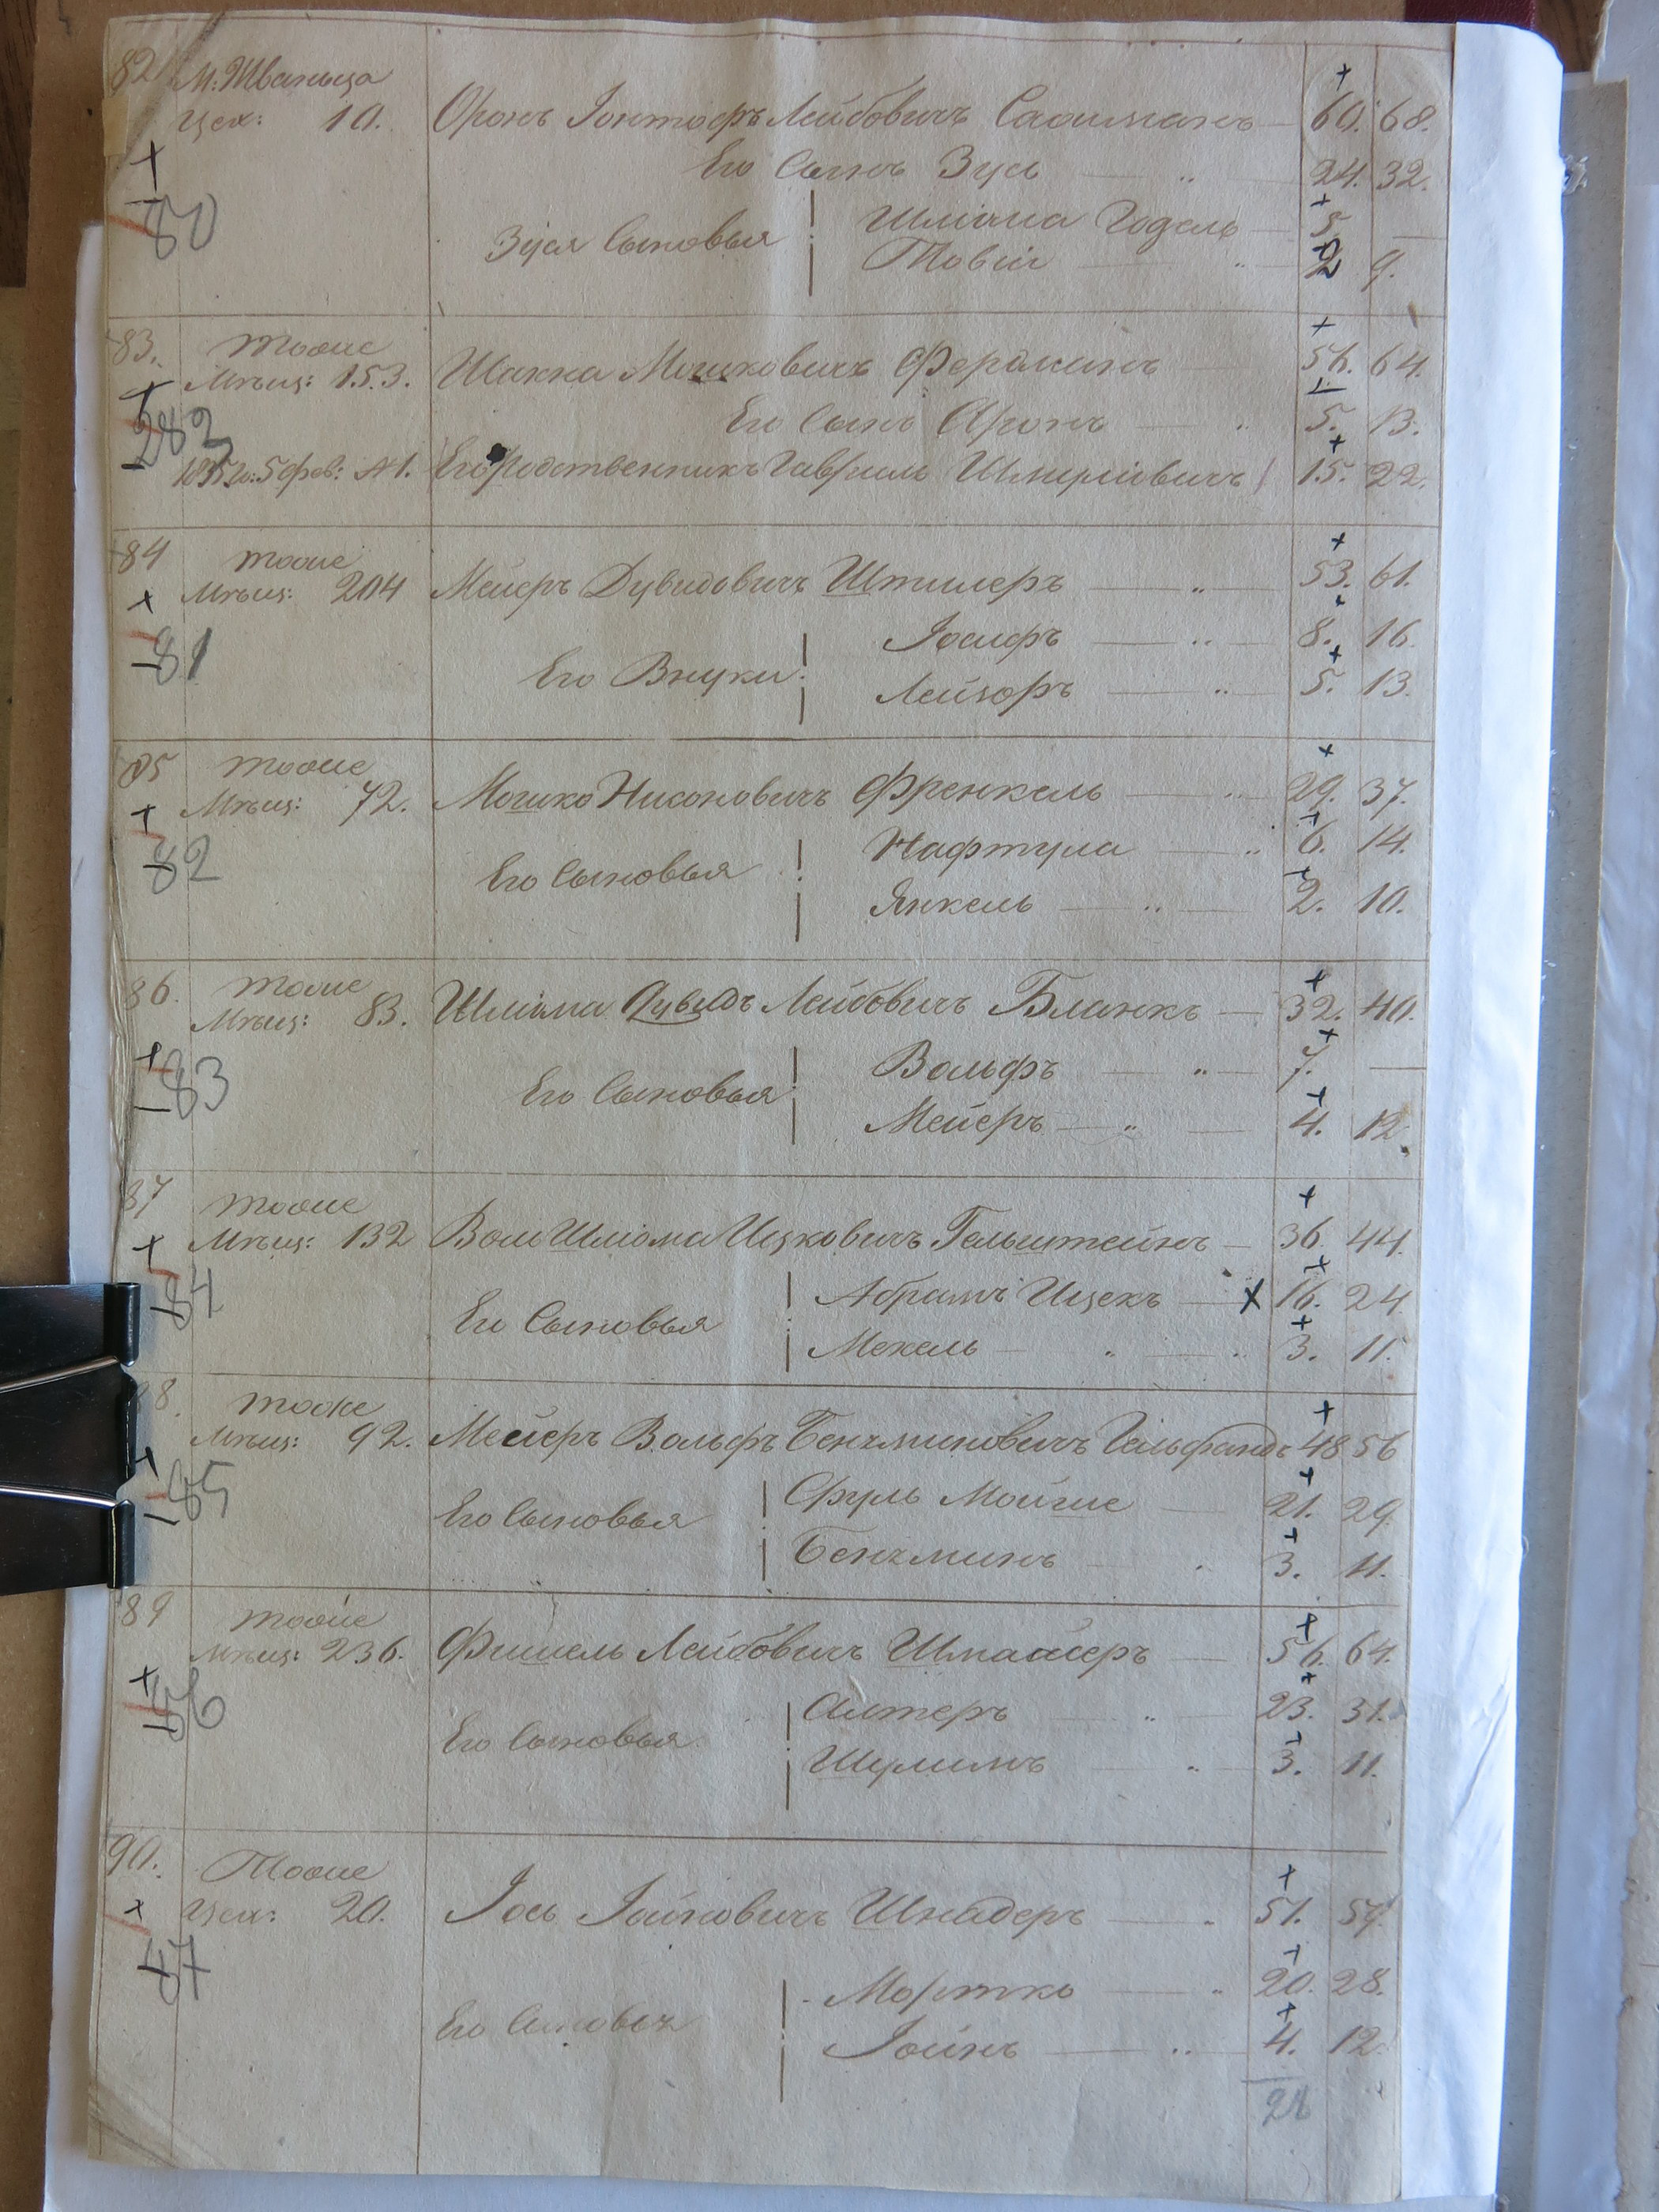 82 М: Жваныца
Цех: 10. Оронъ Іонтофъ Лейбовичъ 60. 68.
80 Его Сынъ Зусь 24. 32.
Зуся Сыновья Шліома Годель 5. —
Товіи 2 9.
83. тоже
Мѣщ: 153. Шахна Мошковичъ Ферлманъ 56. 64.
282 Его Сынъ Аронъ 5. 13.
5 фев: №1. Его родственникъ Гавриль Шмулiовичъ 15. 22.
84 тоже
Мѣщ: 204 Мейеръ Дувидовичъ Штилеръ 53. 61.
81 Его Внуки Іосифъ 8. 16.
Лейзоръ 5. 13.
85 тоже
Мѣщ: 72. Мошко Нисоновичъ Френкель 29. 37.
82 Его Сыновья Нафтула 6. 14.
Янкель 2. 10.
86. тоже
Мѣщ: 83. Шліома Дувидъ Лейбовичъ Бланкъ 32. 40.
83 Его Сыновья Вольфъ 7. —
Мейеръ 4. 12.
87 тоже
Мѣщ: 132 Шліома Ицковичъ Гельштейнъ 36. 44.
84 Его Сыновья Абрамъ Ицекъ 16. 24.
Мехель 3. 11.
88. тоже
Мѣщ: 92. Мейеръ Вольфъ Бенямяновичъ Гельфандъ 48 56
85 Его Сыновья Сруль Мойше 21. 29.
Беняминъ 3. 11.
89 тоже
Мѣщ: 236. Фишель Лейбовичъ 56. 64.
86 Его Сыновья Алтеръ 23. 31.
Шулимъ 3. 11.
90. Тоже
Цех: 20. Іось Іойновичъ Шнадеръ 51. 59.
87 Его Сыновья Мортко 20. 28.
Іойнъ 4. 12.